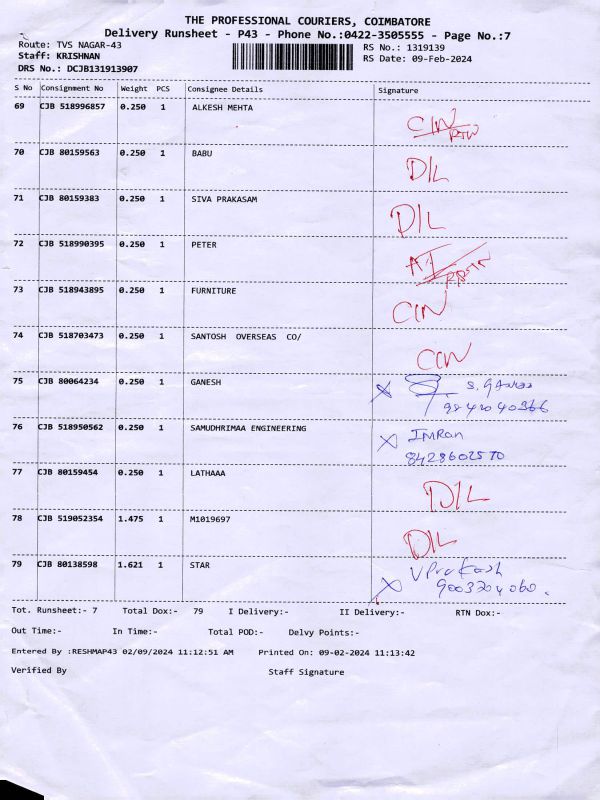 THE PROFESSIONAL COURIERS, COIMBATORE
Delivery Runsheet - P43 - Phone No.:0422-3505555 - Page No.:7
Route: TVS NAGAR-43 RS No.: 1319139
Staff: KRISHNAN RS Date: 09-Feb-2024
DRS No.: DCJB131913907
S No Consignment No Weight PCS Consignee Details Signature
69 CJB 518996857 0.250 1 ALKESH MEHTA
CIN
70 CJB 80159563 0.250 1 BABU
D/L
71 CJB 80159383 0.250 1 SIVA PRAKASAM
D/L
72 CJB 518990395 0.250 1 PETER
73 CJB 518943895 0.250 1 FURNITURE
CIN
74 CJB 518703473 0.250 1 SANTOSH OVERSEAS CO/
CIN
75 CJB 80064234 0.250 1 GANESH
76 CJB 518950562 0.250 1 SAMUDHRIMAA ENGINEERING
IMRan
8428602570
77 CJB 80159454 0.250 1 LATHAAA
D/L
78 CJB 519052354 1.475 1 M1019697
D/L
79 CJB 80138598 1.621 1 STAR
V Prakash
9003204060.
Tot. Runsheet:- 7 Total Dox:- 79 I Delivery:- II Delivery:- RTN Dox:-
Out Time:- In Time:- Total POD:- Delvy Points:-
Entered By :RESHMAP43 02/09/2024 11:12:51 AM Printed On: 09-02-2024 11:13:42
Verified By Staff Signature